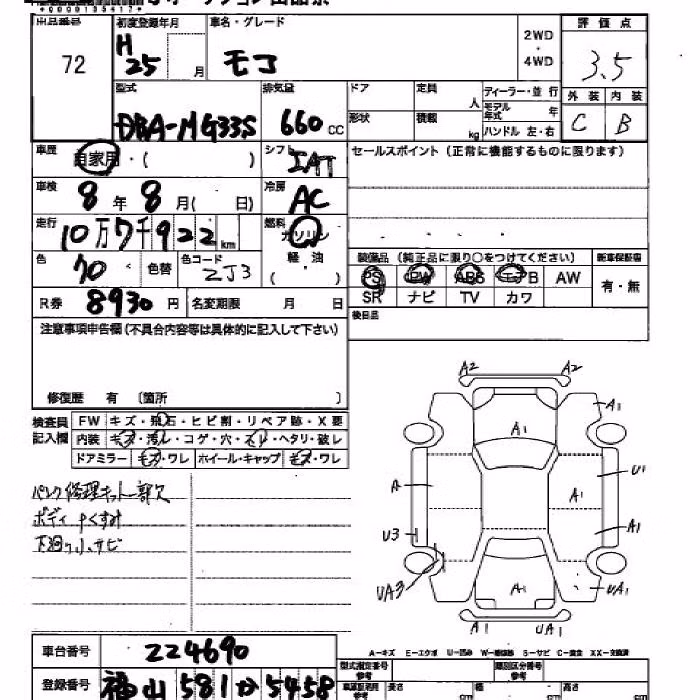 出品番号 初度登録年月 車名・グレード 評価点
72 H 25 月 モコ 2WD・4WD 3.5
型式 排気量 ドア 定員 人 ディーラー・並行 外装 内装
DBA-MG33S 660 CC 形状 積載 kg モデル年式 年 ハンドル 左・右 C B
車歴 自家用・( ) シフト IAT セールスポイント (正常に機能するものに限ります)
車検 8年 8月( 日) 冷房 AC
走行 10万7千922 km 燃料 ガソリン
軽・油
( )
装備品 (純正品に限り○をつけてください) 新車保証書
色 70 色替 色コード ZJ3 PS PW ABS エアB AW 有・無
SR ナビ TV カワ
R券 8930円 名変期限 月 日 後日品
注意事項申告欄(不具合内容等は具体的に記入して下さい)
修復歴 有 〔箇所 〕
検査員記入欄 FW キズ・飛石・ヒビ割・リペア跡・X要
内装 キズ・汚レ・コゲ・穴・スレ・ヘタリ・破レ
ドアミラー キズ・ワレ ホイール・キャップ キズ・ワレ
パンク修理キット一部欠
ボディ
下廻り小サビ
A2 A2
A1
A1
A U1
A1
U3 A1
UA3 A1 UA1
A1 UA1
A-キズ E-エクボ U-凹み S-サビ C-腐食 XX-交換済
車台番号 224690
登録番号 福山 581 か 5458
型式指定番号 参考 類別区分番号 参考
長さ cm 幅 cm 高さ cm